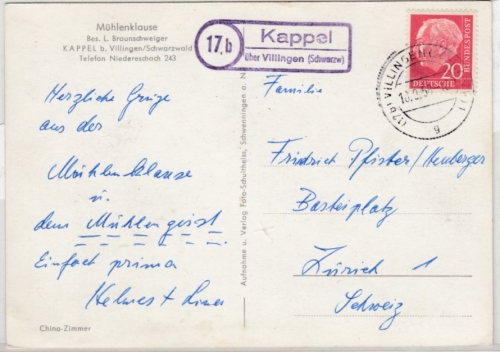 Mühlenklause
Bes. L. Braunschweiger
KAPPEL b. Villingen/Schwarzwald
Telefon Niedereschach 243
17b
Kappel
über Villingen (Schwarzw)
DEUTSCHE BUNDESPOST
20
VILLINGEN
g
Herzliche Grüße
aus der
Mühlenklause
u.
dem Mühlengeist
Einfach prima
Helmut +
China-Zimmer
Aufnahme u. Verlag Foto-Schultheiss, Schwenningen a. N
Familie
Friedrich Pfister/Neuberger
Basteiplatz
Zürich 1
Schweiz